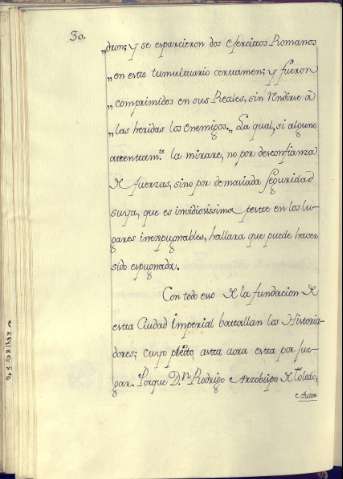 30.
dron; y se esparcieron dos Exercitos Romanos
en este tumultuario certamen; y fueron
comprimidos en sus Reales, sin rendirse a
las heridas los enemigos. La qual, si alguno
attentiam.te la mirare, no por desconfianza
de fuerzas, sino por demasiada seguridad
suya, que es invidiosissima peste en los lu-
gares inexpugnables, hallara que puede haver
sido expugnada.
Con todo eso de la fundacion de
esta Ciudad Imperial battallan los Historia-
dores; cuyo pleito asta aora esta por juz-
gar. Porque D.n Rodrigo Arzobispo de Toledo,